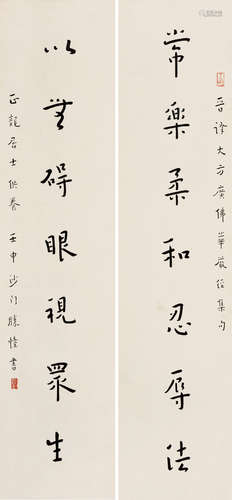 晉譯大方廣佛華嚴經集句
常樂柔和忍辱法
以無碍眼視眾生
正龍居士供養 壬申沙门勝書